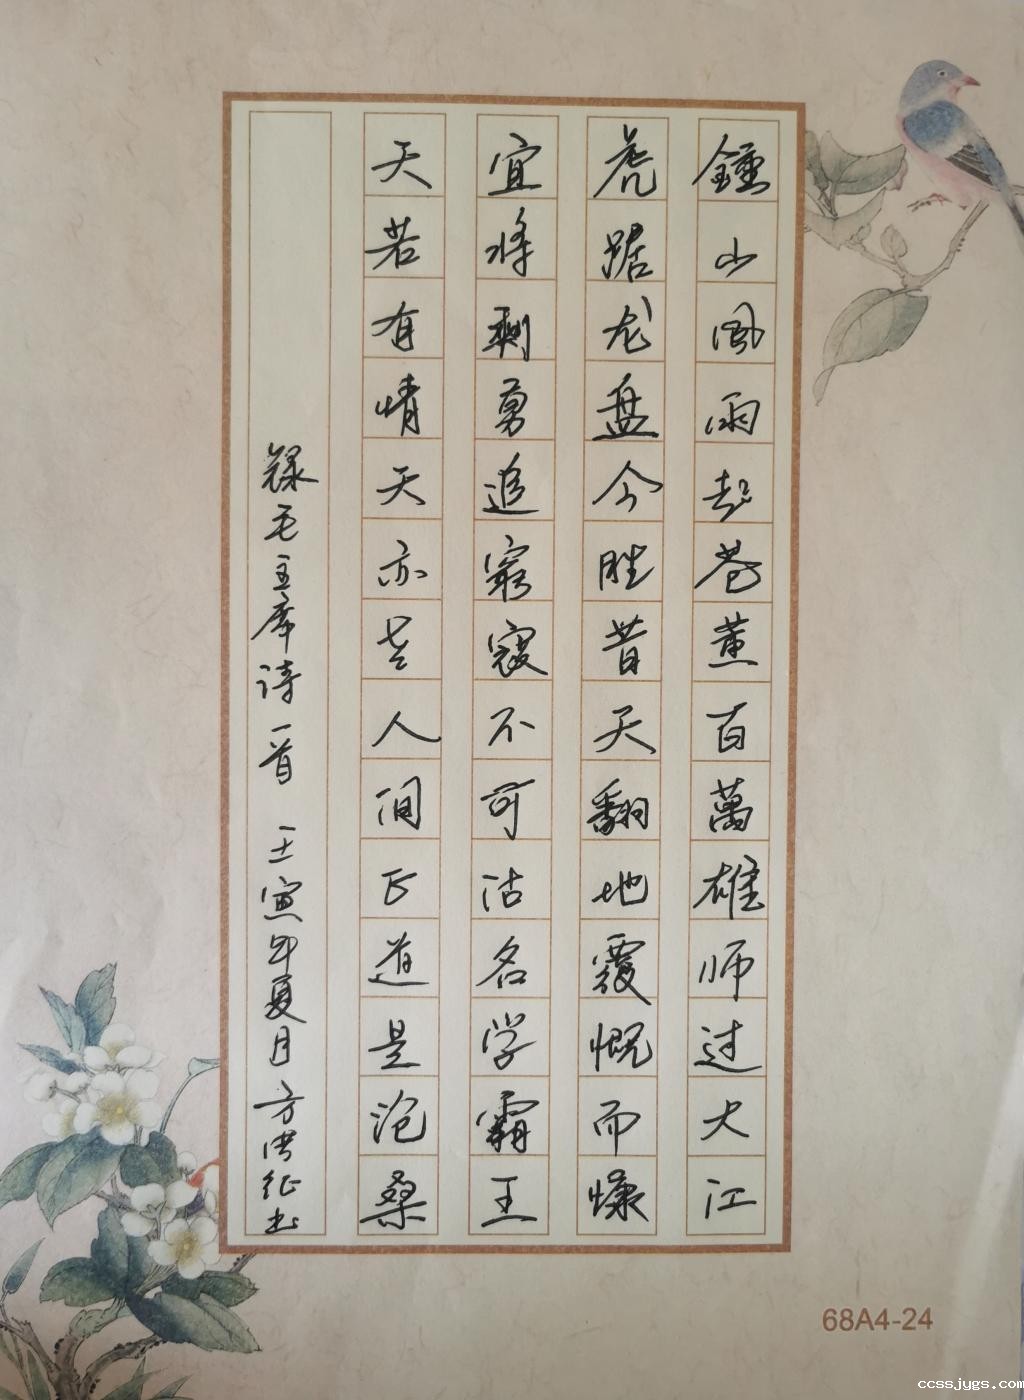 鍾山風雨起苍黄百萬雄师过大江
虎踞龙盘今胜昔天翻地覆慨而慷
宜将剩勇追窮寇不可沽名学霸王
天若有情天亦老人间正道是沧桑
録毛主席诗一首 壬寅年夏月方洪征书
68A4-24
ccssjygs.com